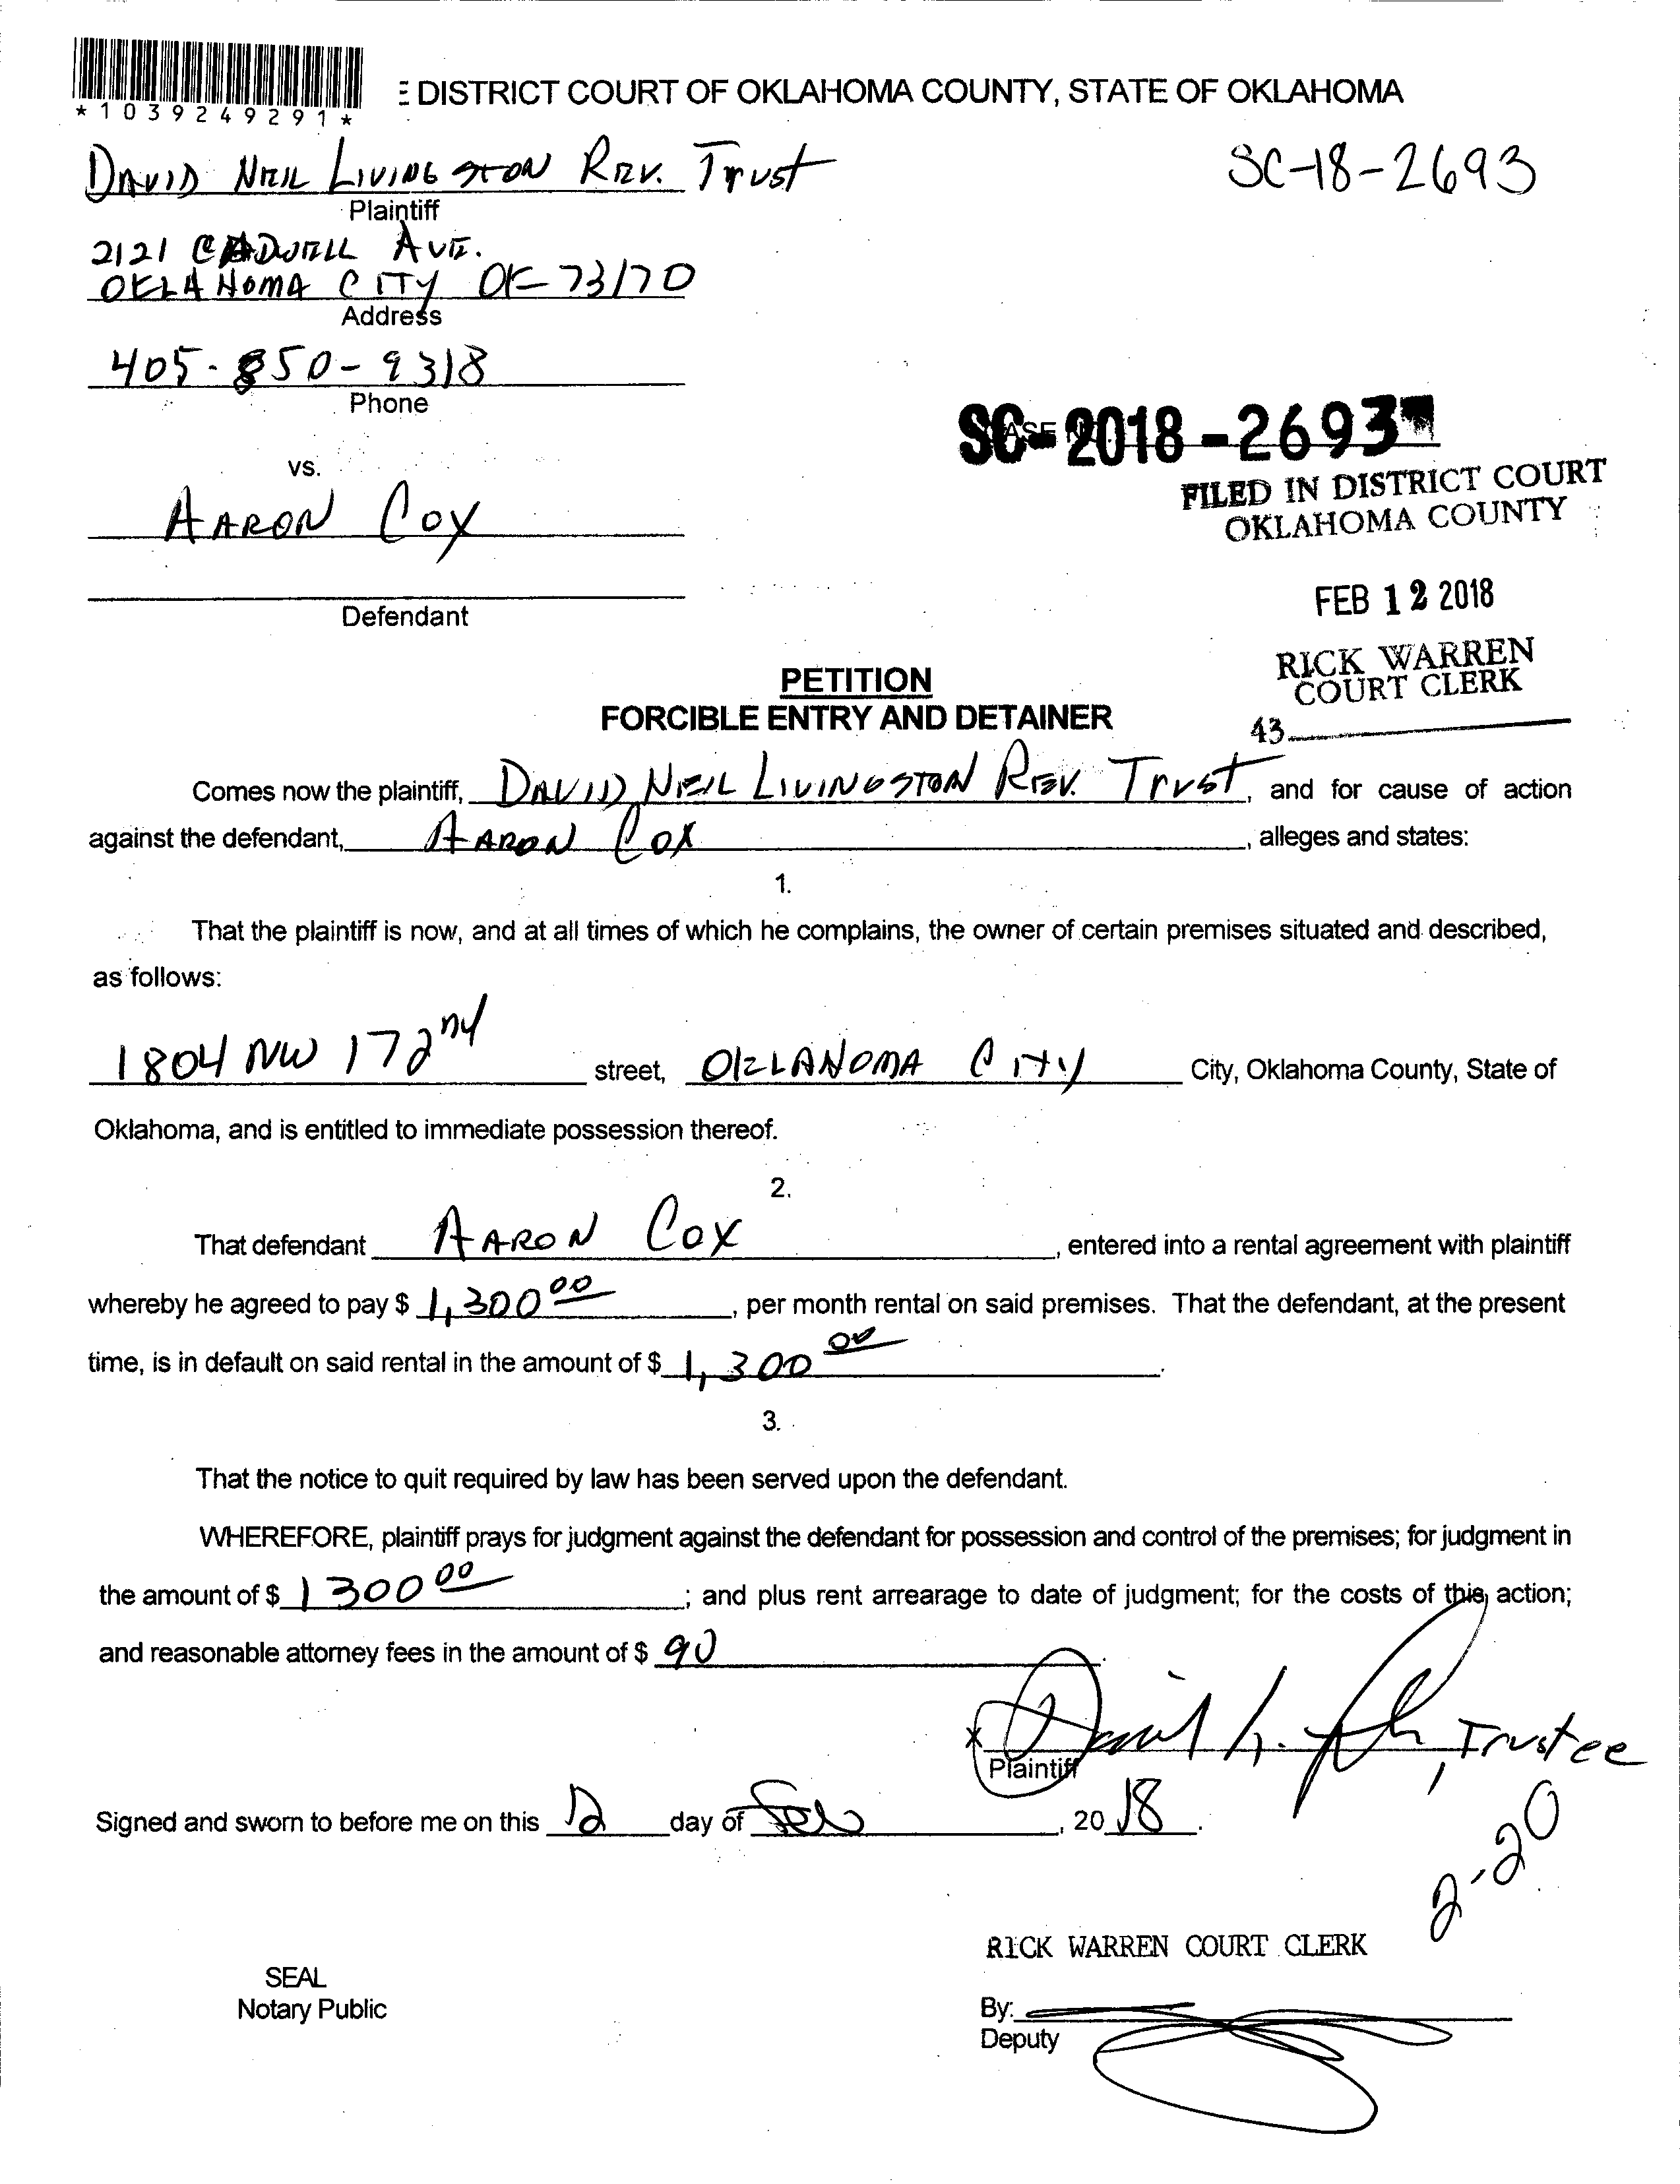 DISTRICT COURT OF OKLAHOMA COUNTY, STATE OF OKLAHOMA
*1039249291*
DAVID NEIL LIVINGSTON REV. Trust
SC-18-2693
Plaintiff
2121 CADWELL AVE.
OKLAHOMA CITY OK 73170
Address
405-850-9318
Phone
SC-2018-2693
FILED IN DISTRICT COURT
OKLAHOMA COUNTY
vs.
AARON COX
FEB 12 2018
Defendant
RICK WARREN
COURT CLERK
43
PETITION
FORCIBLE ENTRY AND DETAINER
Comes now the plaintiff, DAVID NEIL LIVINGSTON REV. Trust, and for cause of action
against the defendant, AARON COX, alleges and states:
1.
That the plaintiff is now, and at all times of which he complains, the owner of certain premises situated and described,
as follows:
1804 NW 172nd street, OKLAHOMA CITY City, Oklahoma County, State of
Oklahoma, and is entitled to immediate possession thereof.
2.
That defendant AARON COX, entered into a rental agreement with plaintiff
whereby he agreed to pay $ 1,300 00, per month rental on said premises. That the defendant, at the present
time, is in default on said rental in the amount of $ 1,300 00.
3.
That the notice to quit required by law has been served upon the defendant.
WHEREFORE, plaintiff prays for judgment against the defendant for possession and control of the premises; for judgment in
the amount of $ 1300 00; and plus rent arrearage to date of judgment; for the costs of this action;
and reasonable attorney fees in the amount of $ 90.
x Trustee
Plaintiff
Signed and sworn to before me on this 12 day of Feb, 2018.
2-20
RICK WARREN COURT CLERK
SEAL
Notary Public
By:
Deputy